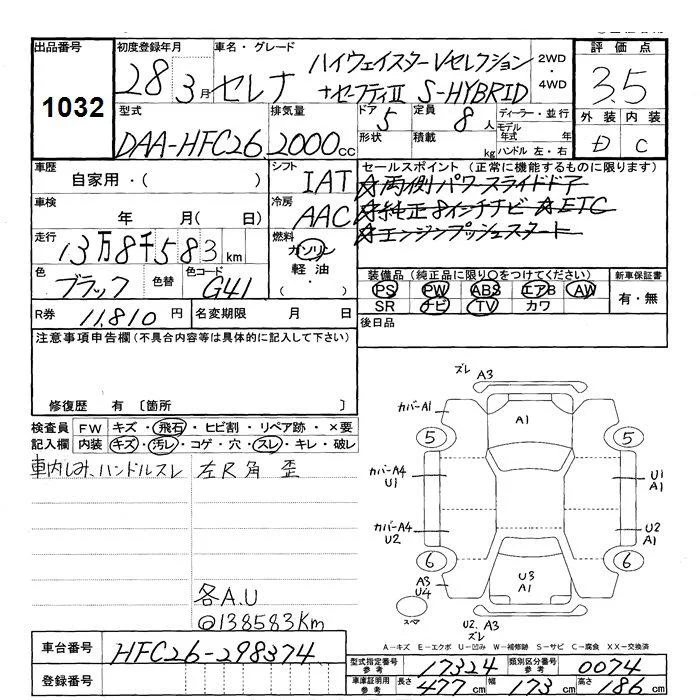 出品番号 初度登録年月 車名・グレード 評価点
1032 28年3月 セレナ ハイウェイスターVセレクション 2WD・
+セーフティII S-HYBRID 4WD 3.5
型式 排気量 ドア 定員 ディーラー・並行 外装 内装
DAA-HFC26 2000cc 5 8人 モデル年式 年 D C
形状 積載 kg ハンドル 左・右
車歴 シフト セールスポイント (正常に機能するものに限ります)
自家用・( ) IAT ☆両側パワースライドドア
車検 冷房 ☆純正8インチナビ ☆ETC
年 月(日) AAC ☆エンジンプッシュスタート
走行 燃料
13万8千583km ガソリン
色 色替 色コード 軽油 装備品 (純正品に限り○をつけてください) 新車保証書
ブラック G41 (・) PS PW ABS エアB AW 有・無
SR ナビ TV カワ
R券 11,810円 名変期限 月 日 後日品
注意事項申告欄 (不具合内容等は具体的に記入して下さい)
修復歴 有 〔箇所 〕
検査員 FW キズ・飛石・ヒビ割・リペア跡・×要
記入欄 内装 キズ・汚レ・コゲ・穴・スレ・キレ・破レ
車内しみ、ハンドルスレ 左R角 歪
各A.U
◎138583Km
ズレ A3
カバーA1 A1
5 5
カバーA4 U1
U1 A1
カバーA4 U2
U2 A1
6 6
A3 U3
U4 A1
スペア U2. A3
ズレ
A-キズ E-エクボ U-凹み W-補修跡 S-サビ C-腐食 XX-交換済
車台番号 HFC26-298374
型式指定番号 参考 17324 類別区分番号 参考 0074
登録番号 車庫証明用 参考 長さ 477cm 幅 173cm 高さ 186cm